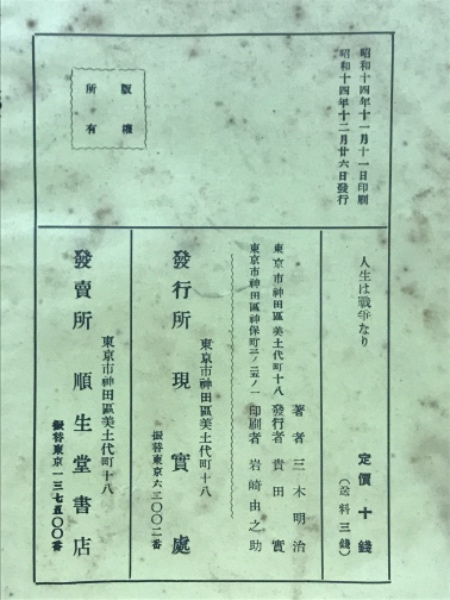 昭和十四年十一月十一日印刷
昭和十四年十二月廿六日發行
版權
所有
人生は戰爭なり
定價 十錢
(送料三錢)
著者 三木明治
東京市神田區美土代町十八
發行者 貴田實
東京市神田區神保町三ノ二五ノ一
印刷者 岩崎由之助
東京市神田區美土代町十八
發行所 現實處
振替東京六三〇〇二番
東京市神田區美土代町十八
發賣所 順生堂書店
振替東京一三七五〇〇番